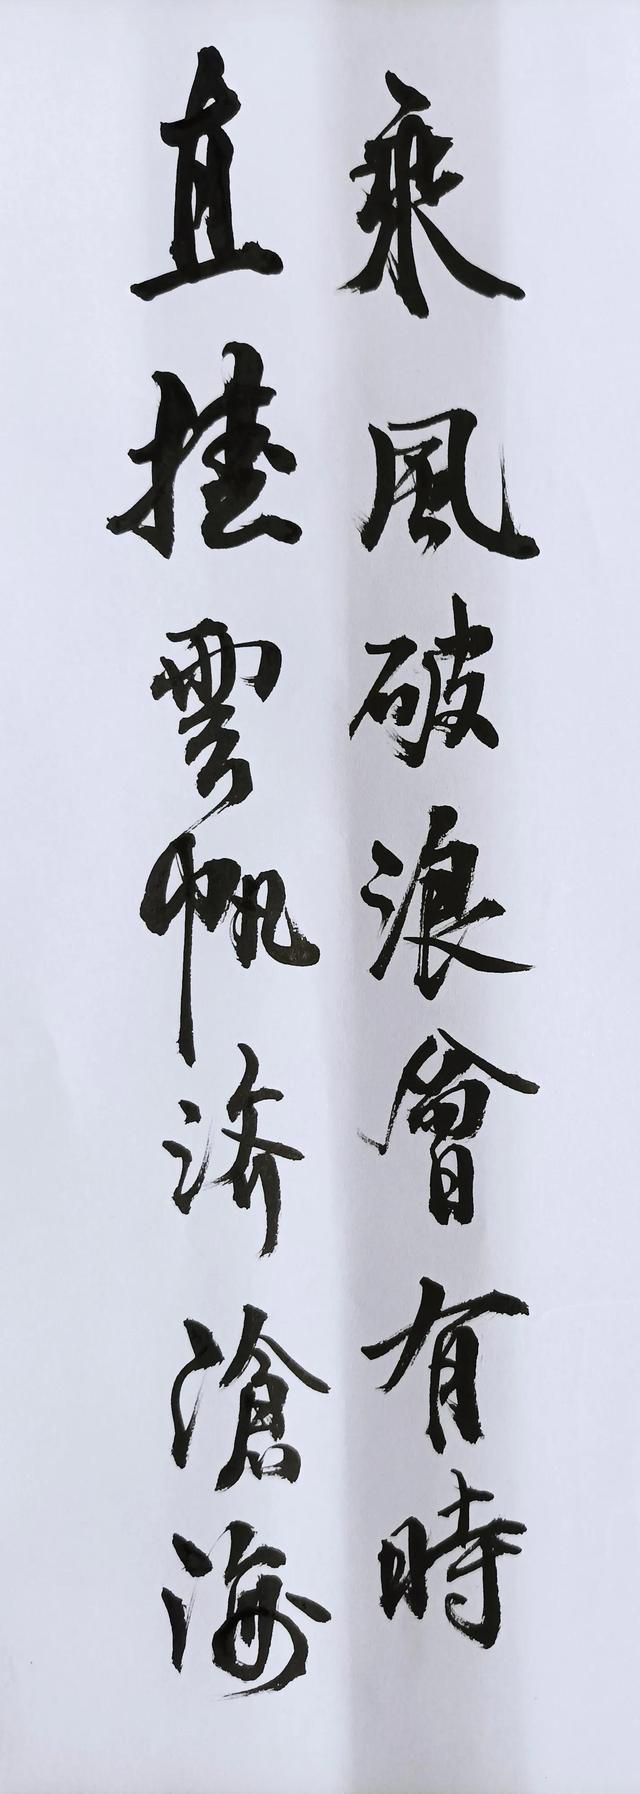 乘風破浪會有時
直挂雲帆济滄海